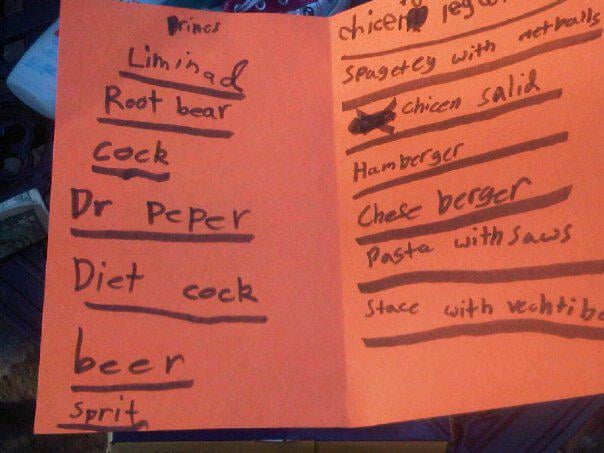 Drincs
Liminad
Root bear
cock
Dr peper
Diet cock
beer
sprit
chicen
spagetey with metballs
chicen salid
Hamberger
Chese berger
Pasta with saws
Stace with vechtibe